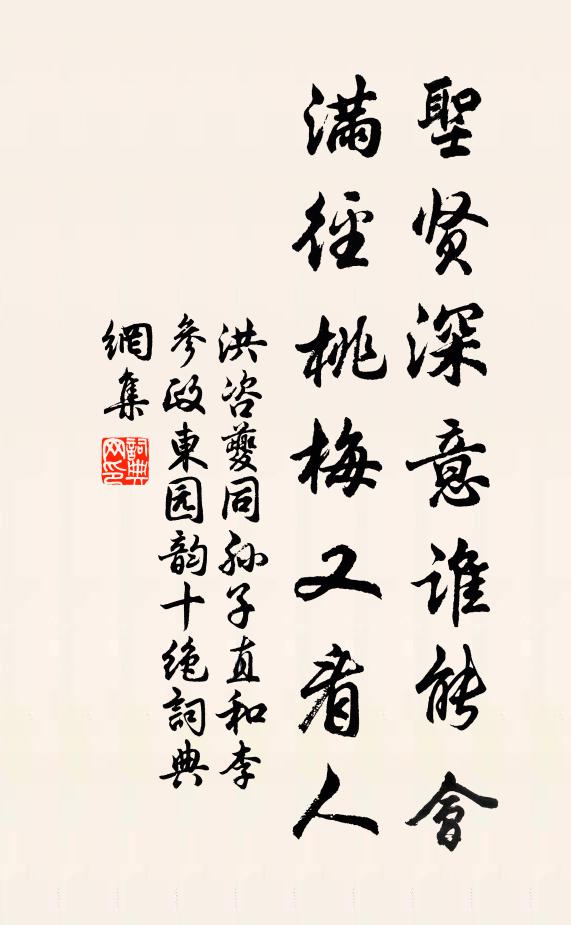 聖贤深意谁能會
满径桃梅又看人
洪咨夔同孙子直和李
参政東园韵十绝詞典
網集
詞典網印